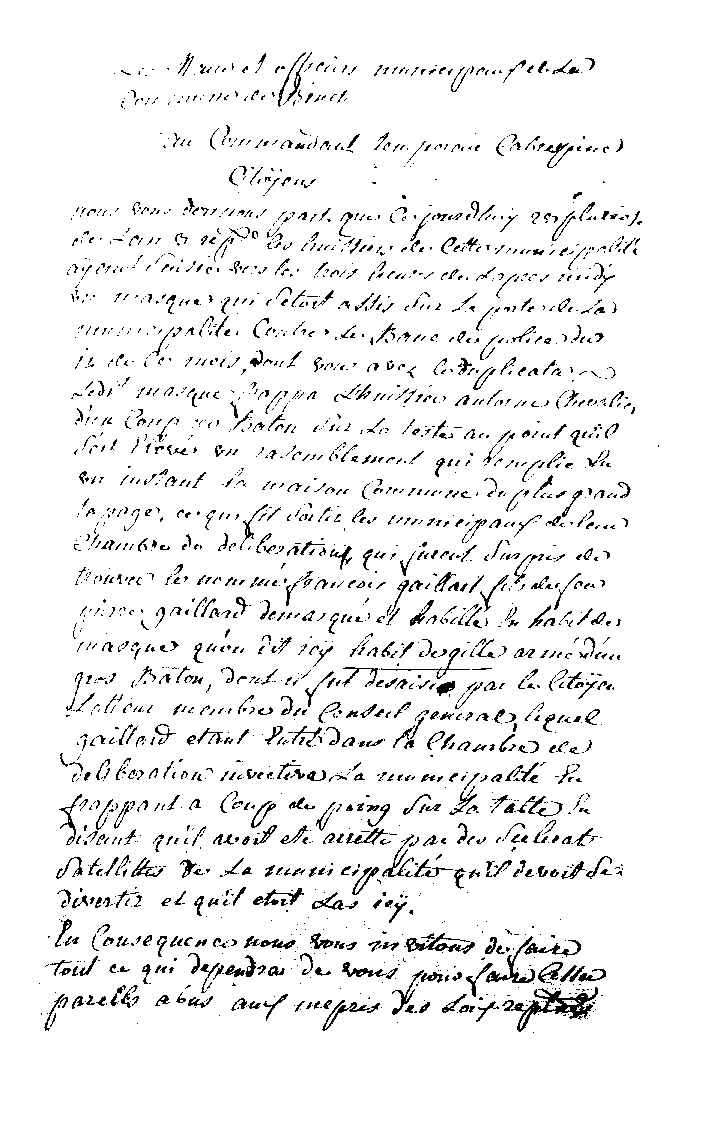 Les Maire et officiers municipaux de La
Commune de Binch
Au Commandant temporaire Cabespine
Citoyens
nous vous donnons part que Ce jourd'huy 22 pluviose
de L'an 5 rep.e les huissiers de Cette municipalité
ayant Saisie vers les trois heures de L apres midy
un masque qui s'etoit assis Sur La porte de La
municipalité Contre Le Banc de police du
12 de Ce mois, dont vous avez le duplicata
Ledit masque frappa L'huissier antoine Chevalier
d'un Coup de Baton Sur La teste au point qu'il
s'est élevé un rasemblement qui remplie En
un instant La maison Commune du plus grand
tapage, ce qui fit Sortir les municipaux de leur
Chambre de deliberation, qui furent Surpris de
trouver le nommé françois gaillart fils de feu
pierre gaillard demasqué et habillé En habit de
masque qu'on dit icy habit de gille armé d'un
gros Baton, dont il fut desaisie par le Citoyen
Lottour membre du Conseil general, lequel
gaillard etant Entré dans la Chambre de
deliberation invectiva La municipalité En
frappant a Coup de poing Sur La table En
disant qu'il avoit eté arretté par des Scelerat
Satellittes de La municipalité qu'il devoit Se
divertir et qu'il etoit Las icy.
En Consequence nous vous invitons de faire
tout ce qui dependra de vous pour faire Cesser
pareils abus aux mepris des Loix